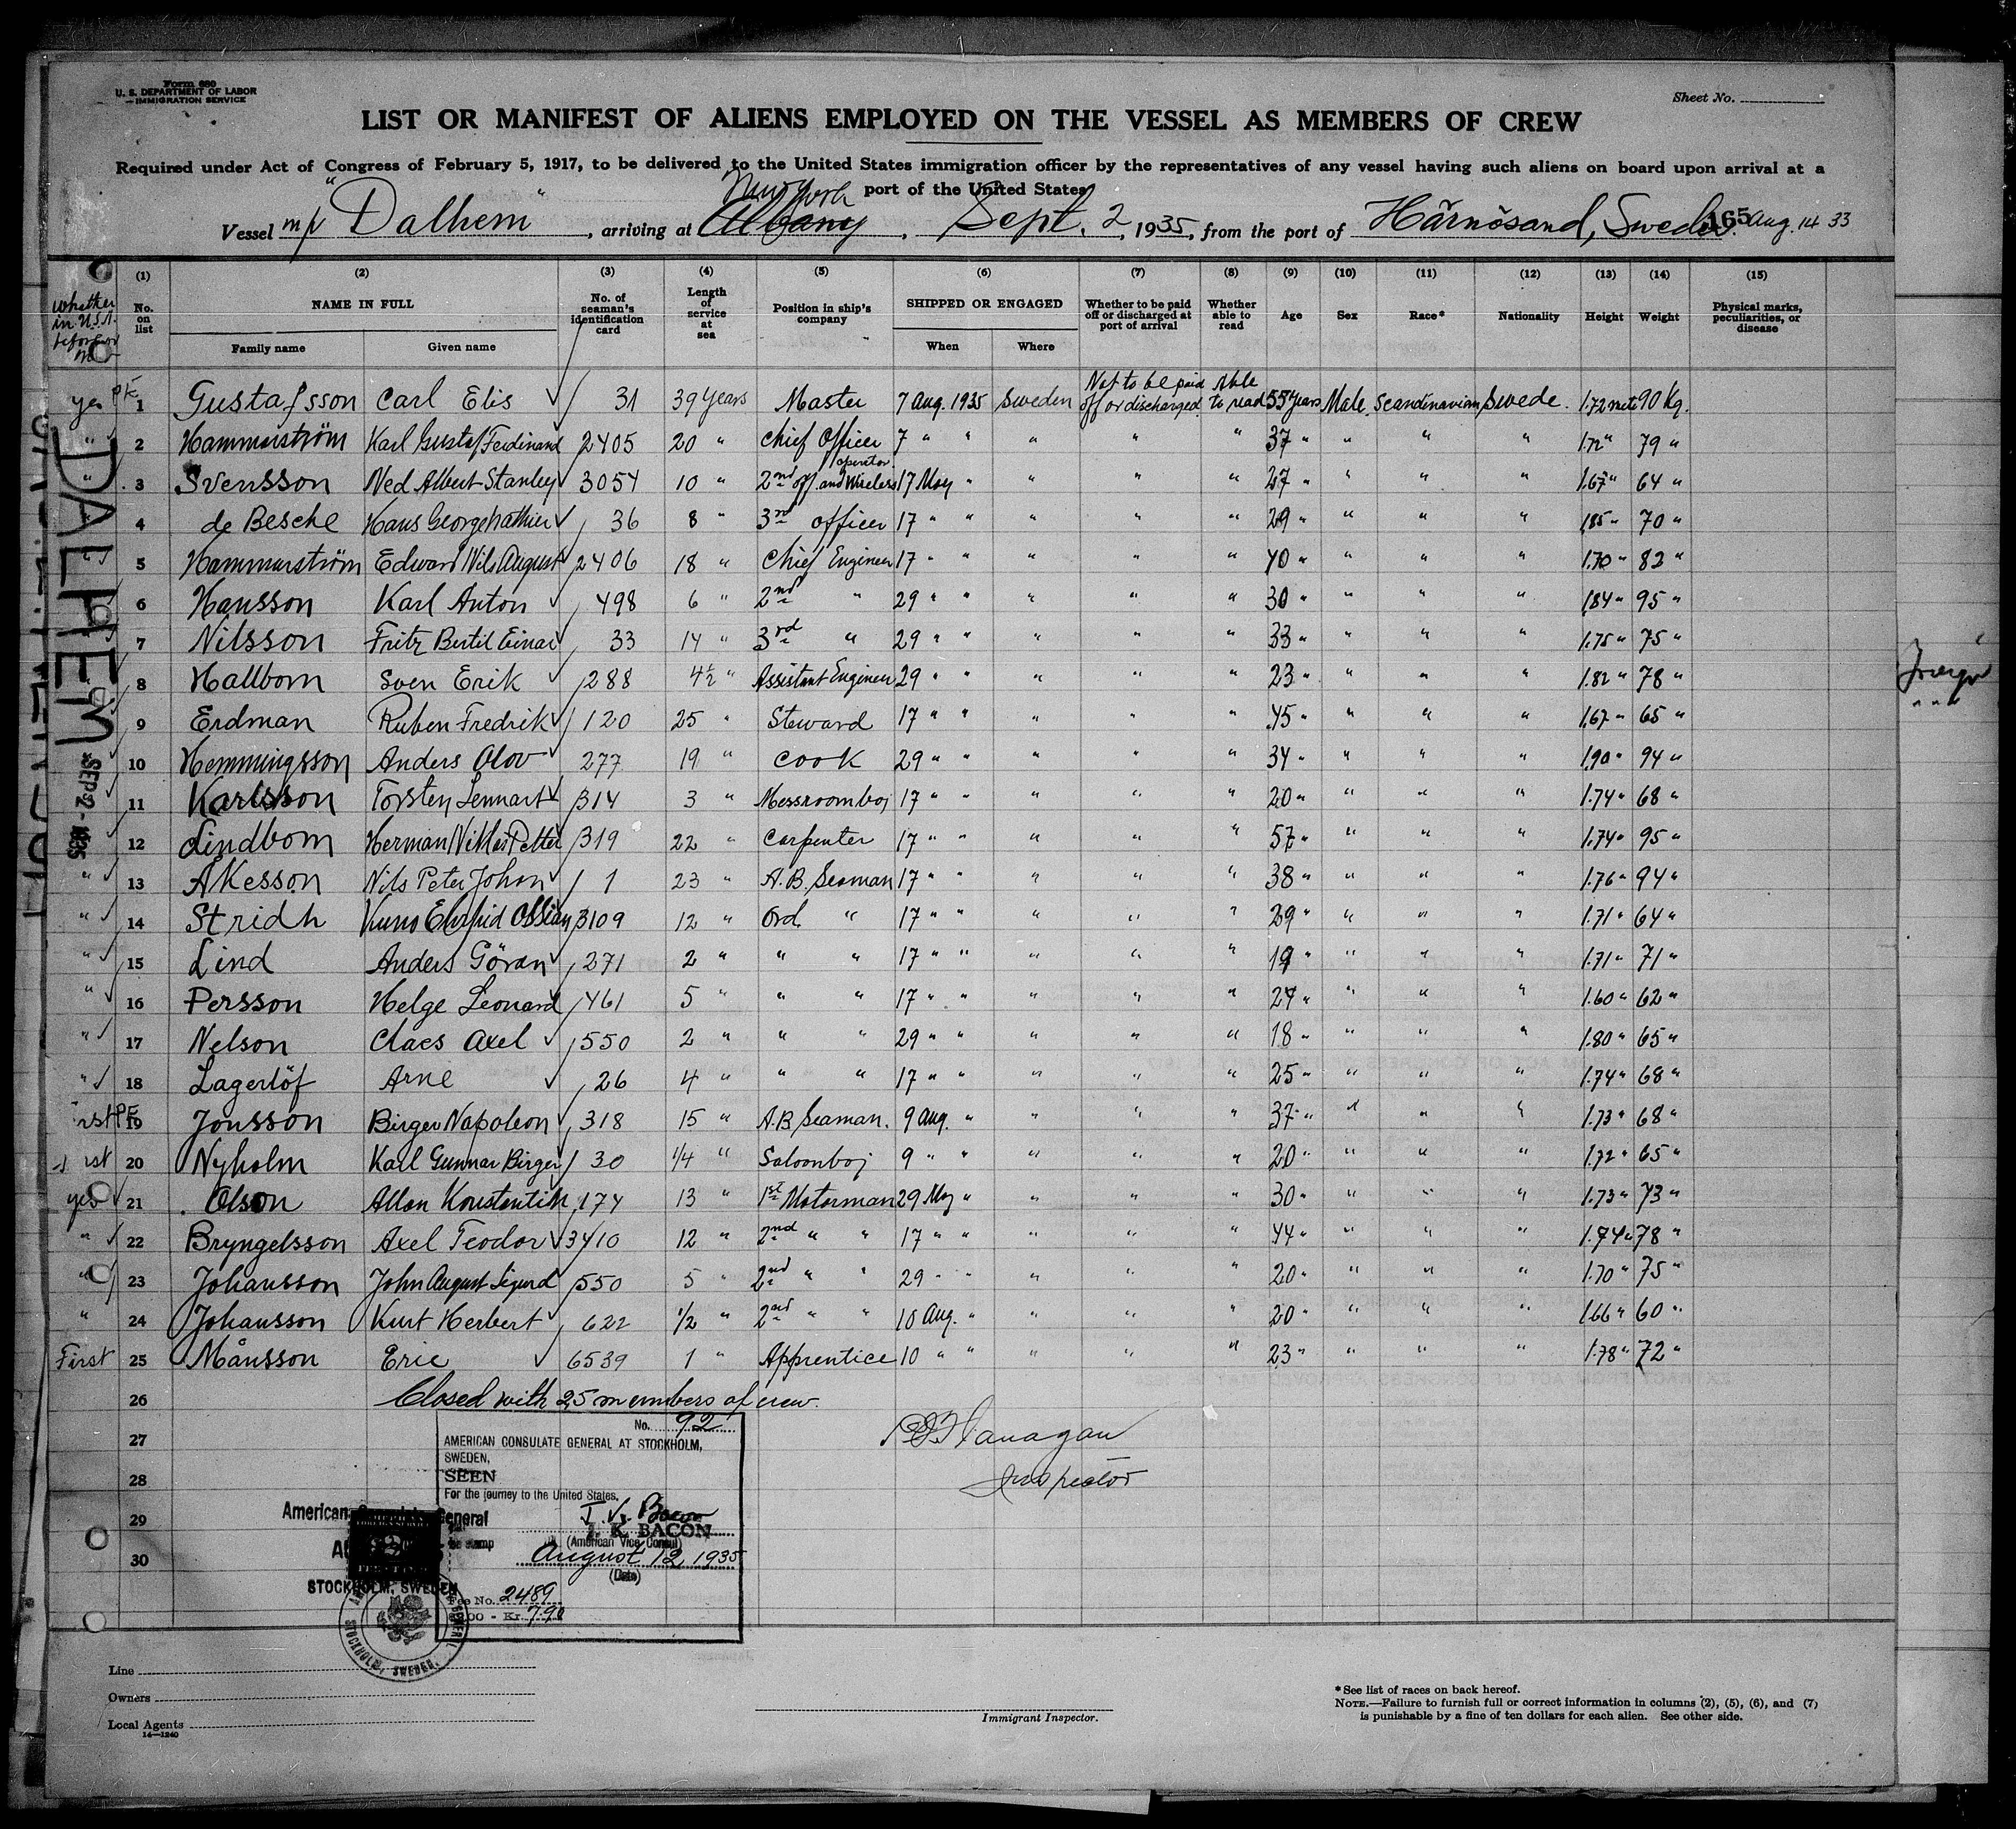 Form 680
U. S. DEPARTMENT OF LABOR
IMMIGRATION SERVICE
Sheet No.
LIST OR MANIFEST OF ALIENS EMPLOYED ON THE VESSEL AS MEMBERS OF CREW
Required under Act of Congress of February 5, 1917, to be delivered to the United States immigration officer by the representatives of any vessel having such aliens on board upon arrival at a
port of the United States
New York
Vessel m/s "Dalhem", arriving at Albany, Sept. 2, 1935, from the port of Härnösand, Sweden. 165 Aug. 14 33
(1) (2) (3) (4) (5) (6) (7) (8) (9) (10) (11) (12) (13) (14) (15)
whether in U.S.A. before or
No. on list
NAME IN FULL
Family name Given name
No. of seaman's identification card
Length of service at sea
Position in ship's company
SHIPPED OR ENGAGED
When Where
Whether to be paid off or discharged at port of arrival
Whether able to read
Age Sex Race* Nationality Height Weight
Physical marks, peculiarities, or disease
yes 1 Gustafsson Carl Elis 31 39 Years Master 7 Aug. 1935 Sweden Not to be paid off or discharged Able to read 55 Years Male Scandinavian Swede. 1.72 met 90 Kg.
" 2 Hammarström Karl Gustaf Ferdinand 2405 20 " Chief Officer 7 " " " " " 37 " " " " 1.72 " 79 "
" 3 Svensson Ned Albert Stanley 3054 10 " 2nd off. and Wireless operator 17 May " " " " 27 " " " " 1.67 " 64 "
" 4 de Besche Hans George 36 8 " 3rd officer 17 " " " " " 29 " " " " 1.85 " 70 "
" 5 Hammarström Edward Nils August 2406 18 " Chief Engineer 17 " " " " " 40 " " " " 1.70 " 82 "
6 Hansson Karl Anton 498 6 " 2nd " 29 " " " " " 30 " " " " 1.84 " 95 "
7 Nilsson Fritz Bertil Einar 33 14 " 3rd " 29 " " " " " 33 " " " " 1.75 " 75 "
8 Hallbom Sven Erik 288 4½ " Assistant Engineer 29 " " " " " 23 " " " " 1.82 " 78 "
9 Erdman Ruben Fredrik 120 25 " Steward 17 " " " " " 45 " " " " 1.67 " 65 "
10 Hemmingsson Anders Olov 277 19 " Cook 29 " " " " " 34 " " " " 1.90 " 94 "
11 Karlsson Torsten Lennart 314 3 " Messroomboj 17 " " " " " 20 " " " " 1.74 " 68 "
12 Lindbom Herman Petter 319 22 " Carpenter 17 " " " " " 57 " " " " 1.74 " 95 "
" 13 Åkesson Nils Peter Johan 1 23 " A.B. Seaman 17 " " " " " 38 " " " " 1.76 " 94 "
" 14 Stridh Ossian 3109 12 " Ord. " 17 " " " " " 29 " " " " 1.71 " 64 "
" 15 Lind Anders Göran 271 2 " " " 17 " " " " " 19 " " " " 1.71 " 71 "
" 16 Persson Helge Leonard 461 5 " " " 17 " " " " " 24 " " " " 1.60 " 62 "
" 17 Nelson Claes Axel 550 2 " " " 29 " " " " " 18 " " " " 1.80 " 65 "
" 18 Lagerlöf Arne 26 4 " " " 17 " " " " " 25 " " " " 1.74 " 68 "
19 Jonsson Birger Napoleon 318 15 " A.B. Seaman. 9 Aug. " " " " 37 " " " " 1.73 " 68 "
20 Nyholm Karl Gunnar Birger 30 1/4 " Saloonboj 9 " " " " " 20 " " " " 1.72 " 65 "
yes 21 Olson Allan Konstantin 174 13 " 1st Motorman 29 May " " " " 30 " " " " 1.73 " 73 "
" 22 Bryngelsson Axel Teodor 3410 12 " 2nd " " 17 " " " " " 44 " " " " 1.74 " 78 "
" 23 Johansson John August Sigurd 550 5 " 2nd " " 29 " " " " " 20 " " " " 1.70 " 75 "
" 24 Johansson Kurt Herbert 622 1/2 " 2nd " " 10 Aug. " " " " 20 " " " " 1.66 " 60 "
First 25 Månsson Eric 6539 1 " Apprentice 10 " " " " " 23 " " " " 1.78 " 72 "
26 Closed with 25 members of crew.
27
28
29
30
Flanagan
Inspector
DALHEM
SEP 2 - 1935
No. 92
AMERICAN CONSULATE GENERAL AT STOCKHOLM,
SWEDEN.
SEEN
For the journey to the United States.
J. K. BACON
(American Vice Consul)
August 12 1935
(Date)
Fee No. 2489
Kr. 7.90
American General
STOCKHOLM, SWEDEN
STOCKHOLM, SWEDEN.
Line
Owners
Local Agents
14—1240
Immigrant Inspector.
* See list of races on back hereof.
NOTE.—Failure to furnish full or correct information in columns (2), (5), (6), and (7)
is punishable by a fine of ten dollars for each alien. See other side.